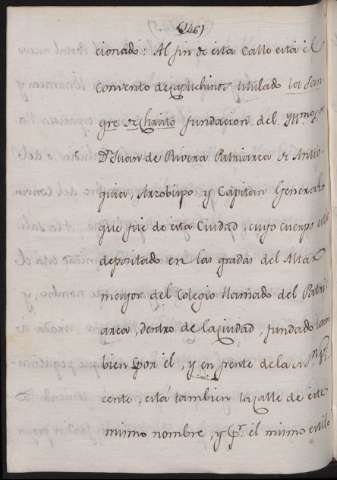 (246)
cionado: Al fin de esta Calle està el
Convento de Capuchinos titulado la San
gre de Christo fundacion del Yllmo. Sr.
Dn. Juan de Rivera Patriarca de Antio
quia, Arzobispo y Capitan General
que fue de esta Ciudad, cuyo cuerpo està
depositado en las gradas del Altar
mayor del Colegio llamado del Patri
arca, dentro de la Ciudad, fundado tam
bien por èl, y en frente de la Sn. Vi
cente, està tambien la calle de este
mismo nombre, y pr. el mismo estilo